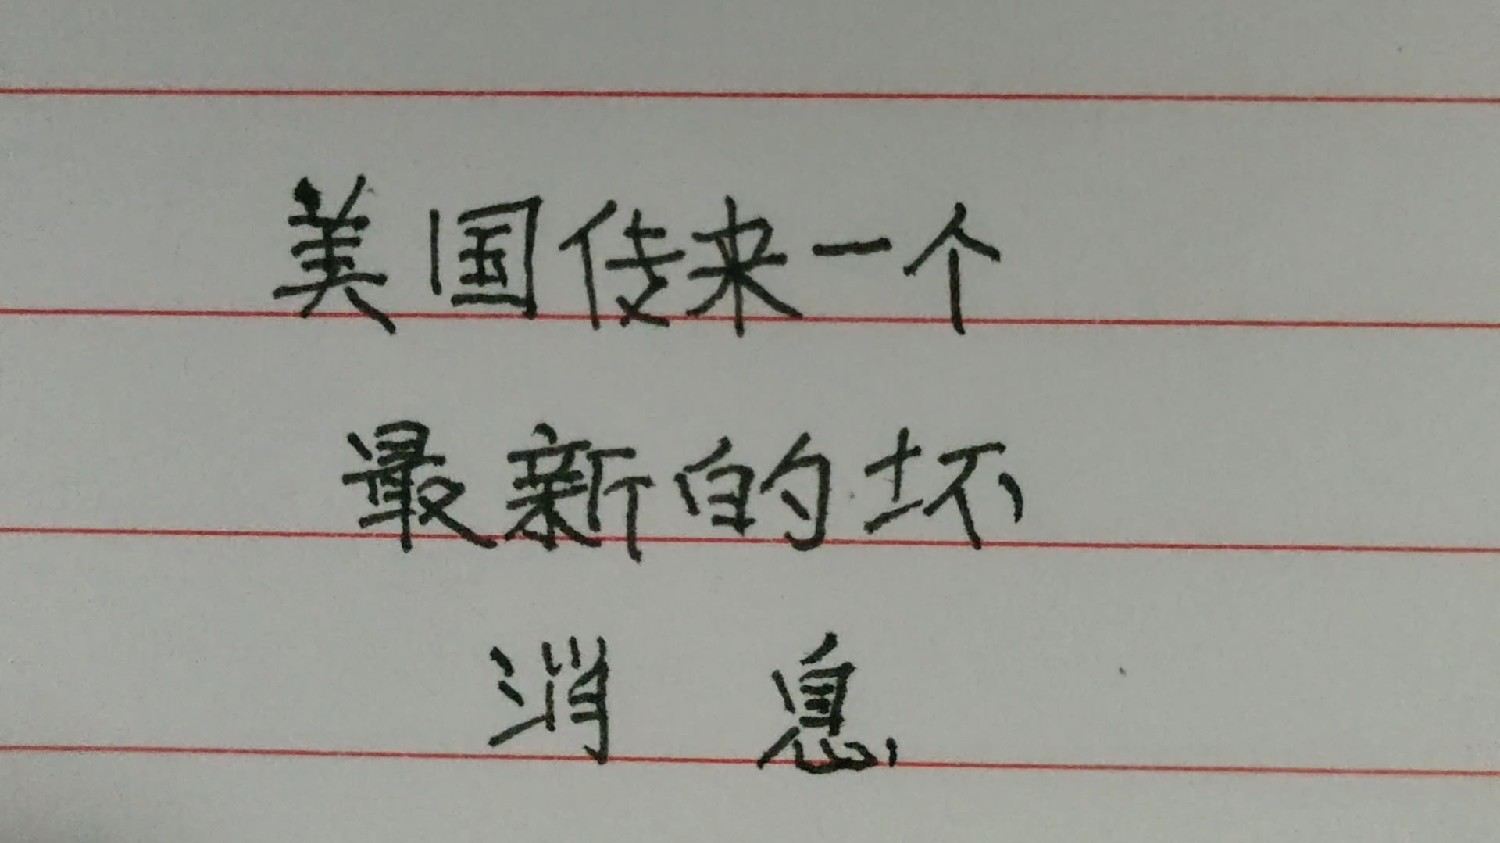 美国传来一个
最新的坏
消息